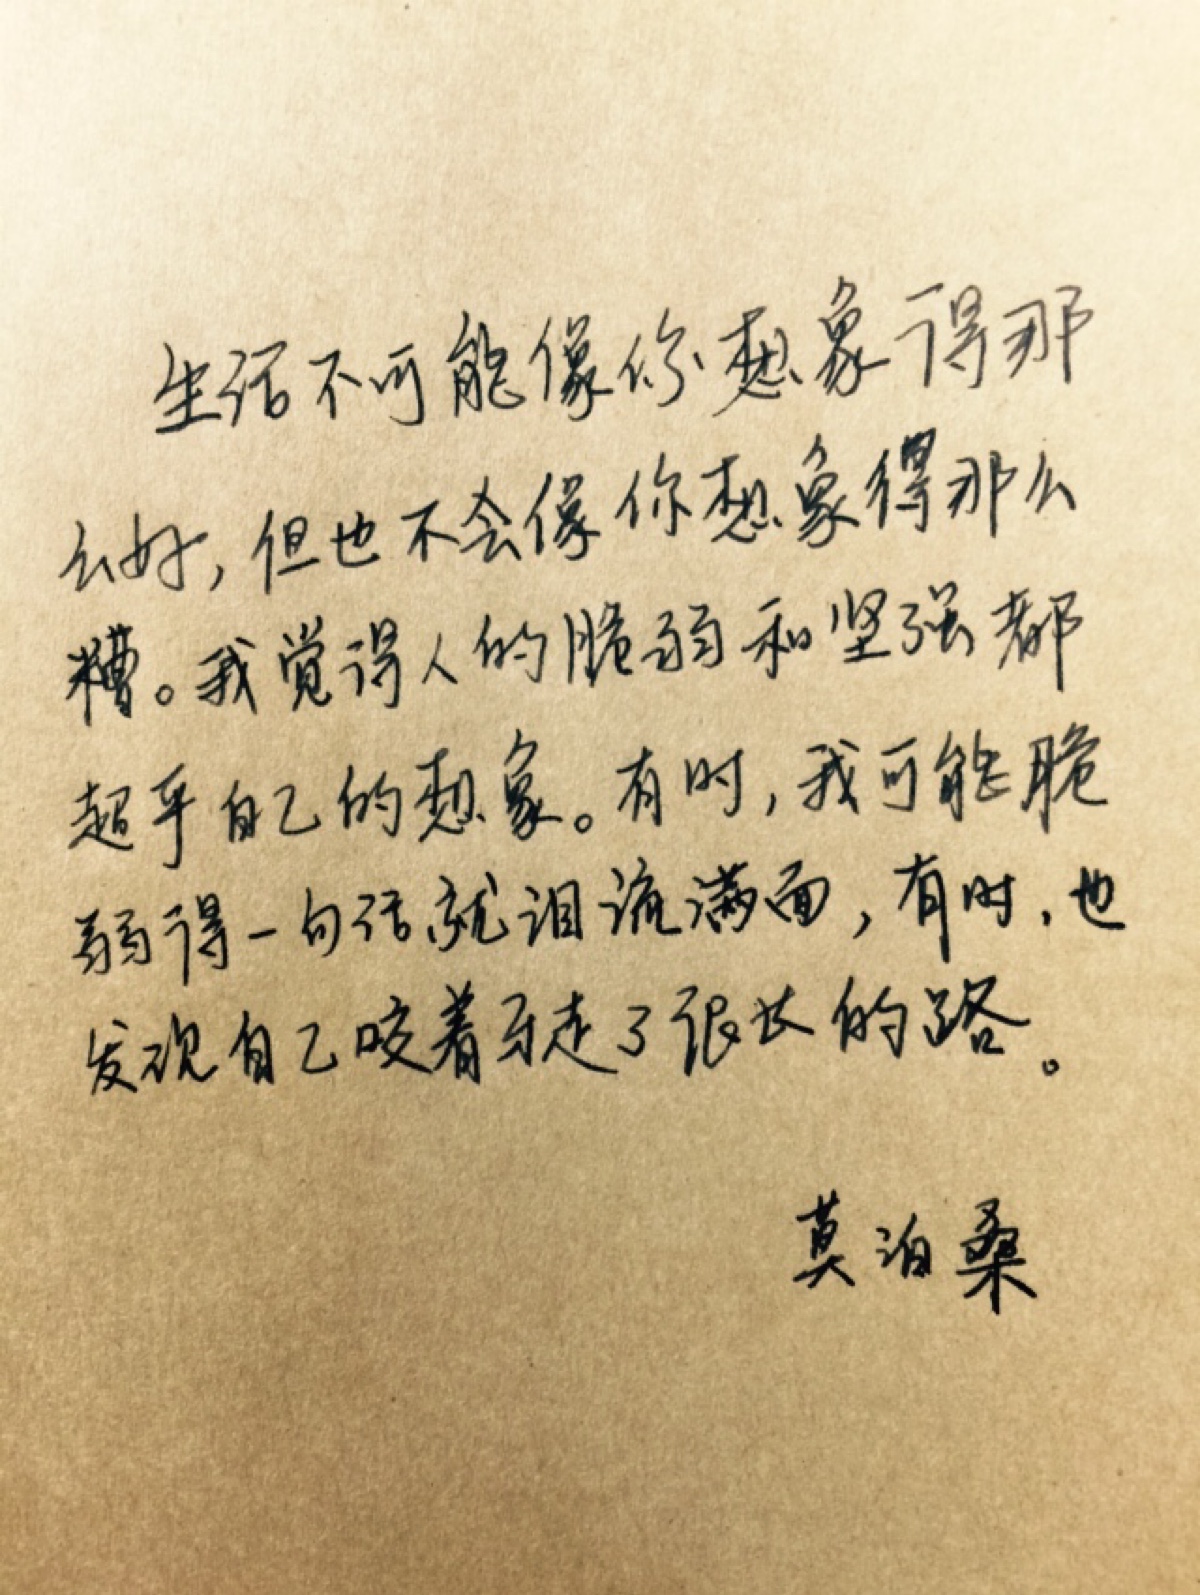 生活不可能像你想象得那
么好，但也不会像你想象得那么
糟。我觉得人的脆弱和坚强都
超乎自己的想象。有时，我可能脆
弱得一句话就泪流满面，有时，也
发现自己咬着牙走了很长的路。
莫泊桑